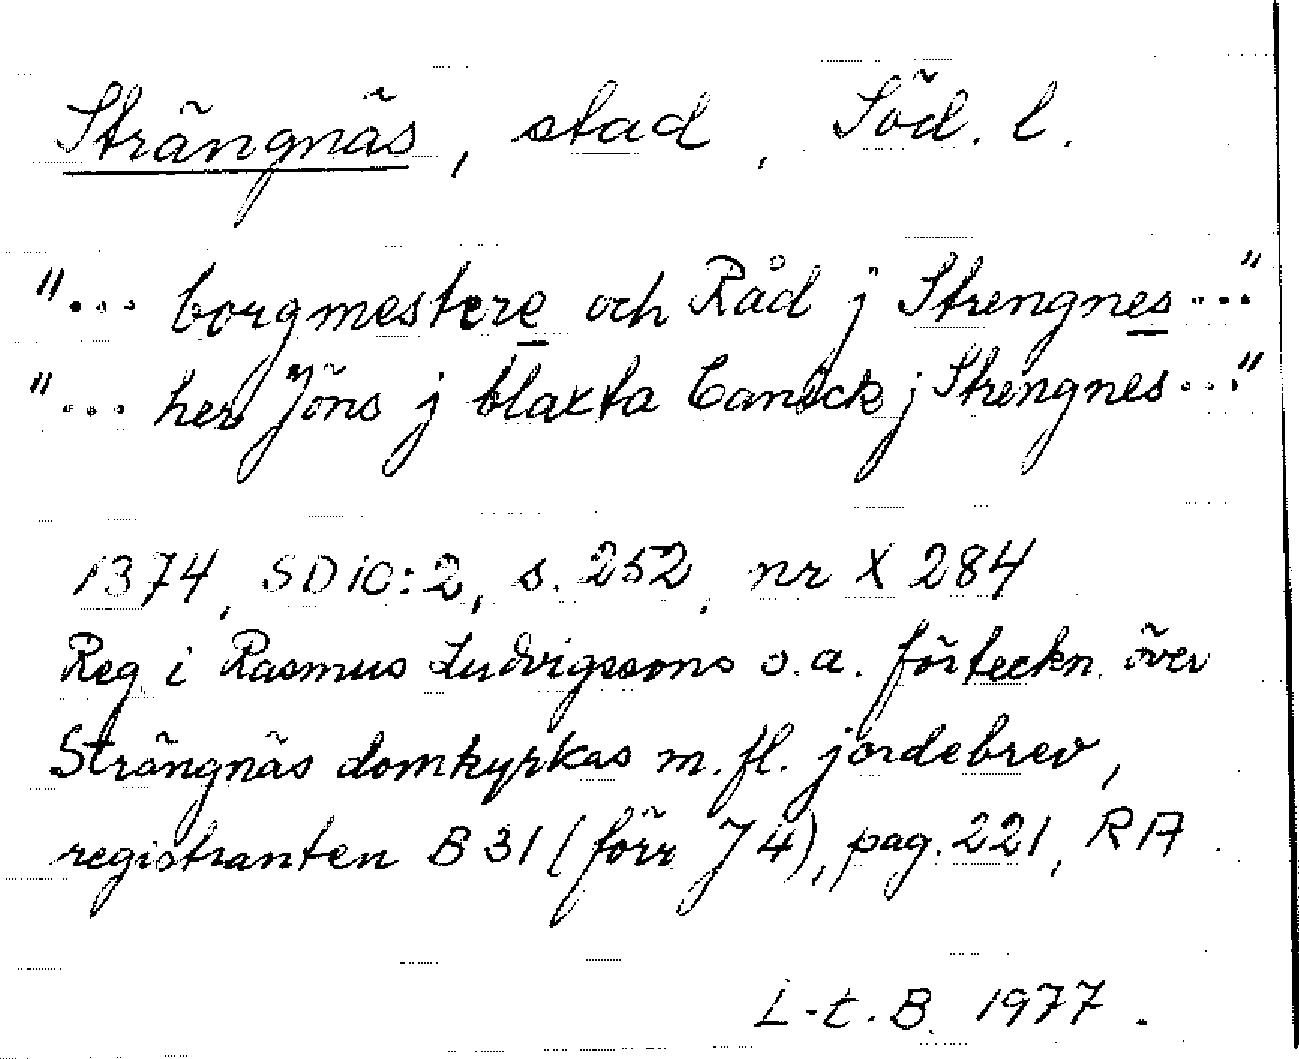 Strängnäs, stad, Söd. l.
"... borgmestere och Råd j Strengnes ..."
"... her Jöns j blaxta Canick j Strengnes ..."
1374, SD 10:2, s. 252, nr X 284
Reg i Rasmus Ludvigssons o.a. förteckn. över
Strängnäs domkyrkas m.fl. jordebrev,
registranten B 31 (förr J 4), pag. 221, RA
L-t.B. 1977.